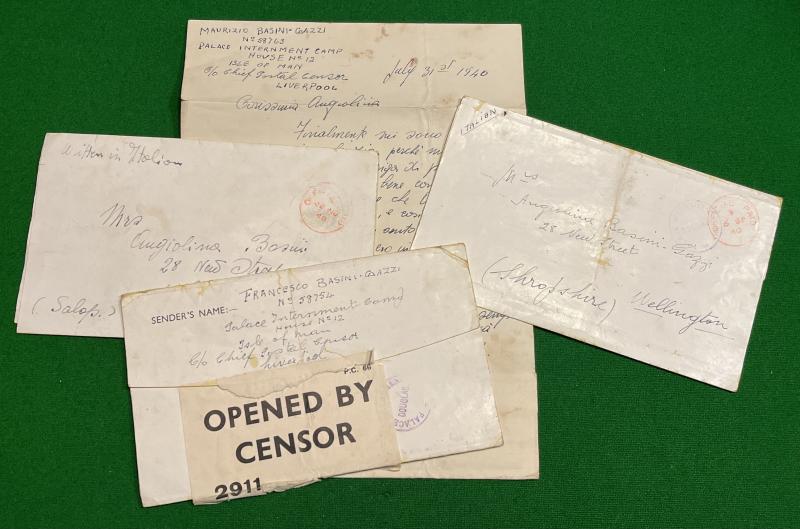 MAURIZIO BASINI-GAZZI
No 58763
PALACE INTERNMENT CAMP
HOUSE No 12
ISLE OF MAN
c/o Chief Postal Censor
LIVERPOOL
July 31st 1940
Carissima Angiolina
Finalmente mi sono
perché
bene con
che
e così
Written in Italian
Mrs
Angiolina Basini
28 New Street
(Salop.)
ITALIAN
Mrs
Angiolina Basini-Gazzi
28 New Street
(Shropshire) Wellington
SENDER'S NAME:- FRANCESCO BASINI-GAZZI
No 58754
Palace Internment Camp
House No 12
Isle of Man
c/o Chief Postal Censor
Liverpool
P.C. 66
OPENED BY
CENSOR
2911
PALACE DOUGLAS